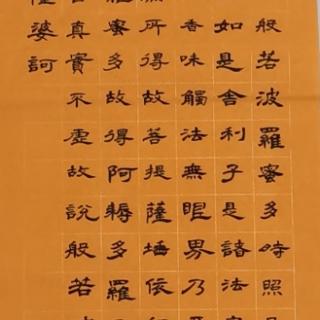 般若波羅蜜多時照見
如是舍利子是諸法空
香味觸法無眼界乃
所得故菩提薩埵依
蜜多故得阿耨多羅
真實不虛故說般若
薩婆訶